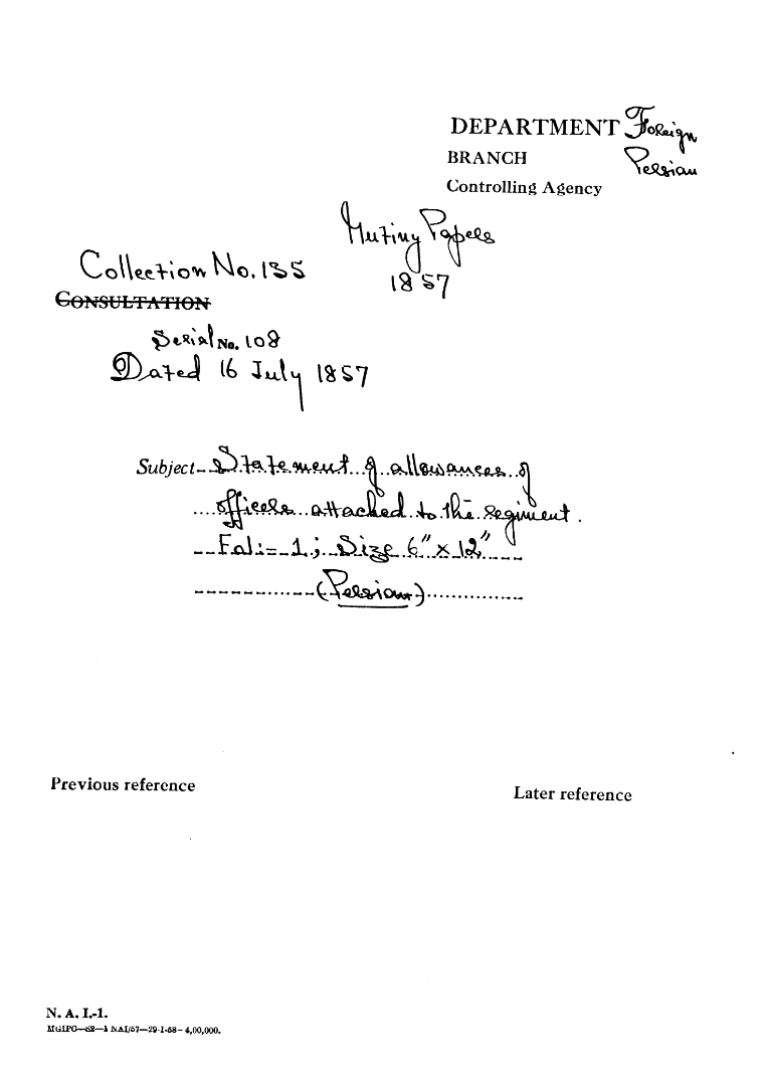 DEPARTMENT Foreign
BRANCH Persian
Controlling Agency
Mutiny Papers
1857
Collection No. 135
CONSULTATION
Serial No. 108
Dated 16 July 1857
Subject Statement of allowances of
officers attached to the regiment.
Fol:- 1; Size 6" x 12"
(Persian)
Previous reference
Later reference
N. A. I.-1.
MGIPC—68—1 NAI/67—29-1-68—4,00,000.